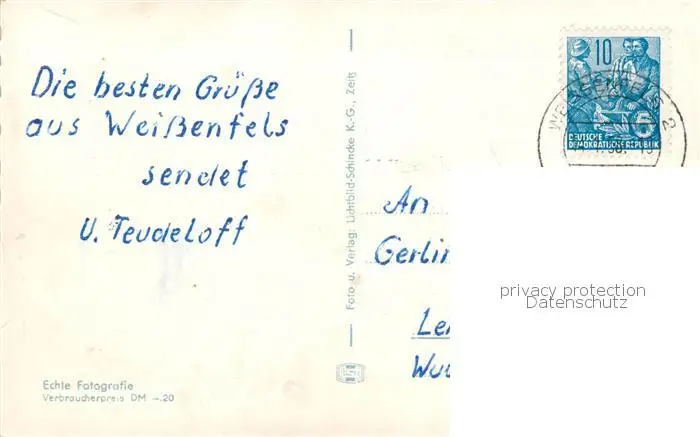 Die besten Grüße
aus Weißenfels
sendet
U. Teudeloff
Echte Fotografie
Verbraucherpreis DM -.20
Foto u. Verlag: Lichtbild-Schincke K.-G., Zeitz
10
DEUTSCHE
DEMOKRATISCHE REPUBLIK
An
Gerlin
privacy protection
Datenschutz